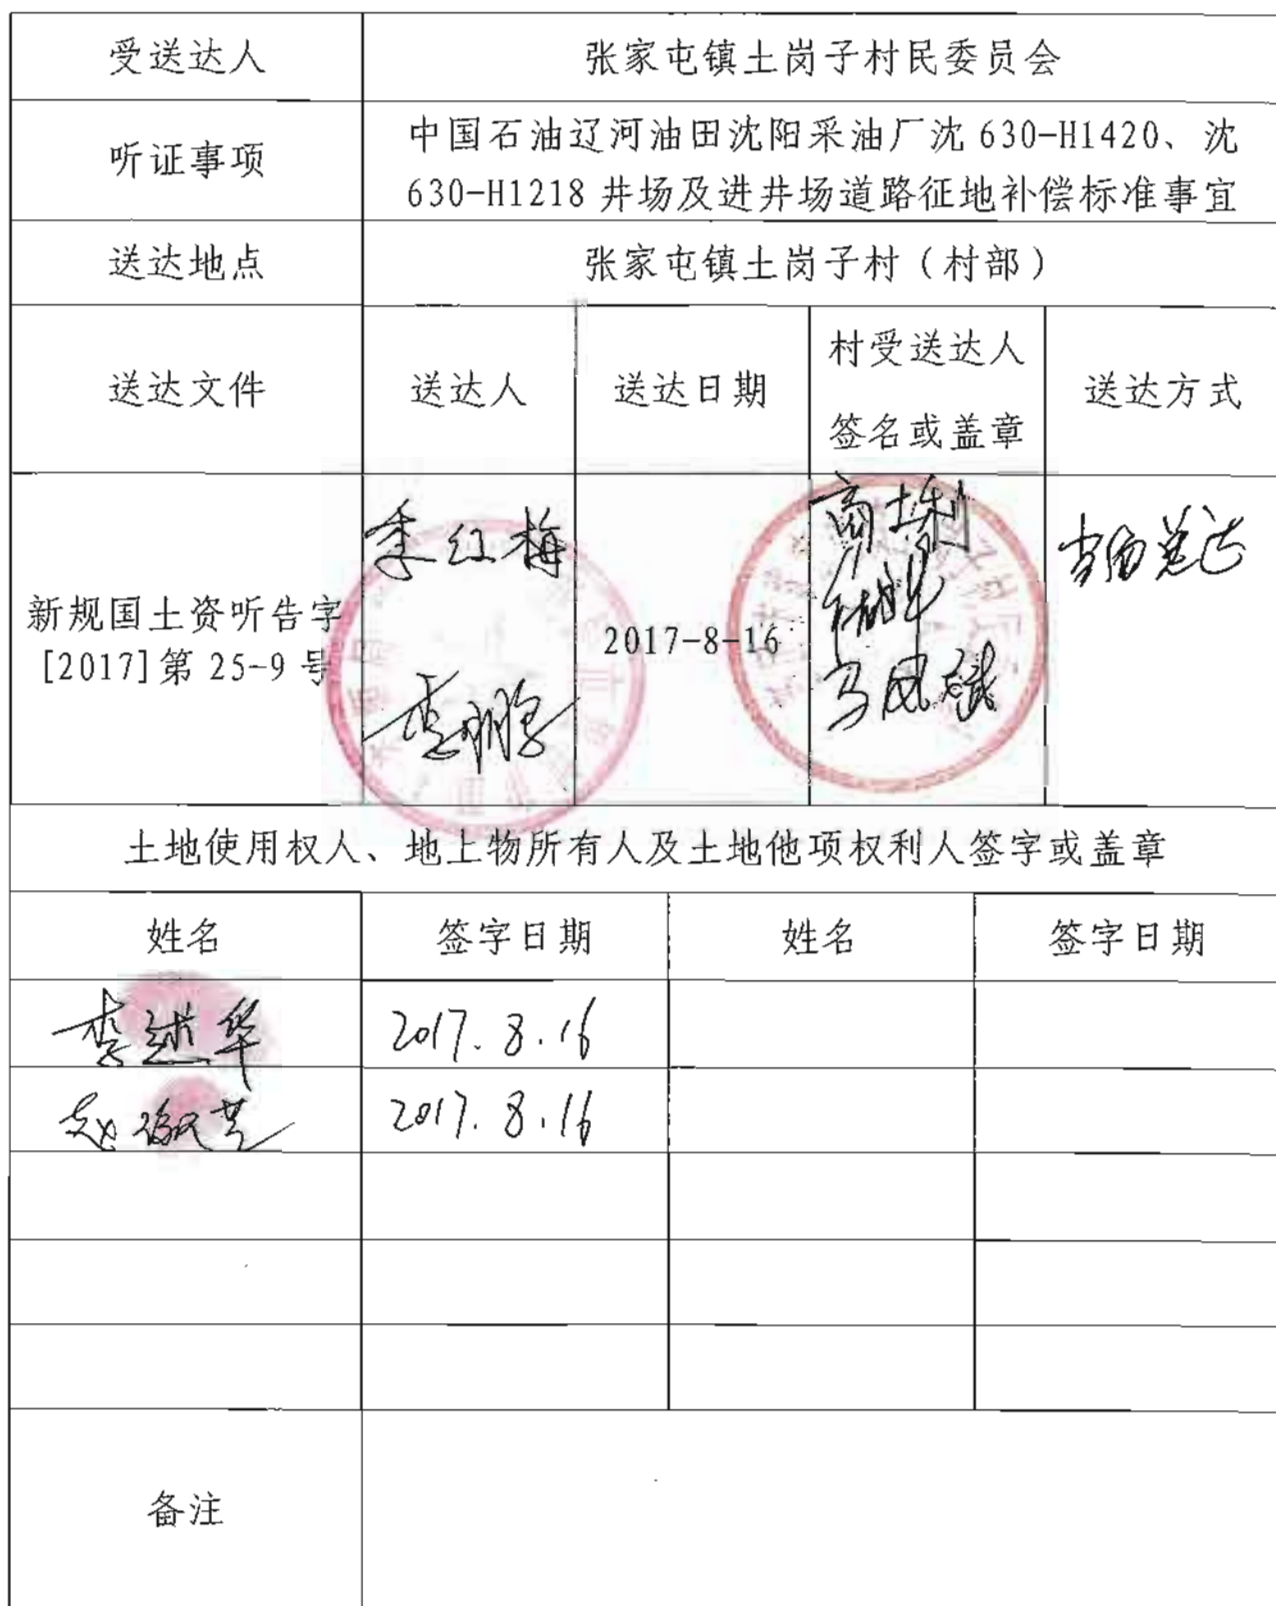 受送达人
张家屯镇土岗子村民委员会
听证事项
中国石油辽河油田沈阳采油厂沈 630-H1420、沈
630-H1218 井场及进井场道路征地补偿标准事宜
送达地点
张家屯镇土岗子村（村部）
送达文件
送达人
送达日期
村受送达人
签名或盖章
送达方式
新规国土资听告字
[2017]第 25-9 号
李红梅
2017-8-16
土地使用权人、地上物所有人及土地他项权利人签字或盖章
姓名
签字日期
姓名
签字日期
2017.8.16
2017.8.16
备注